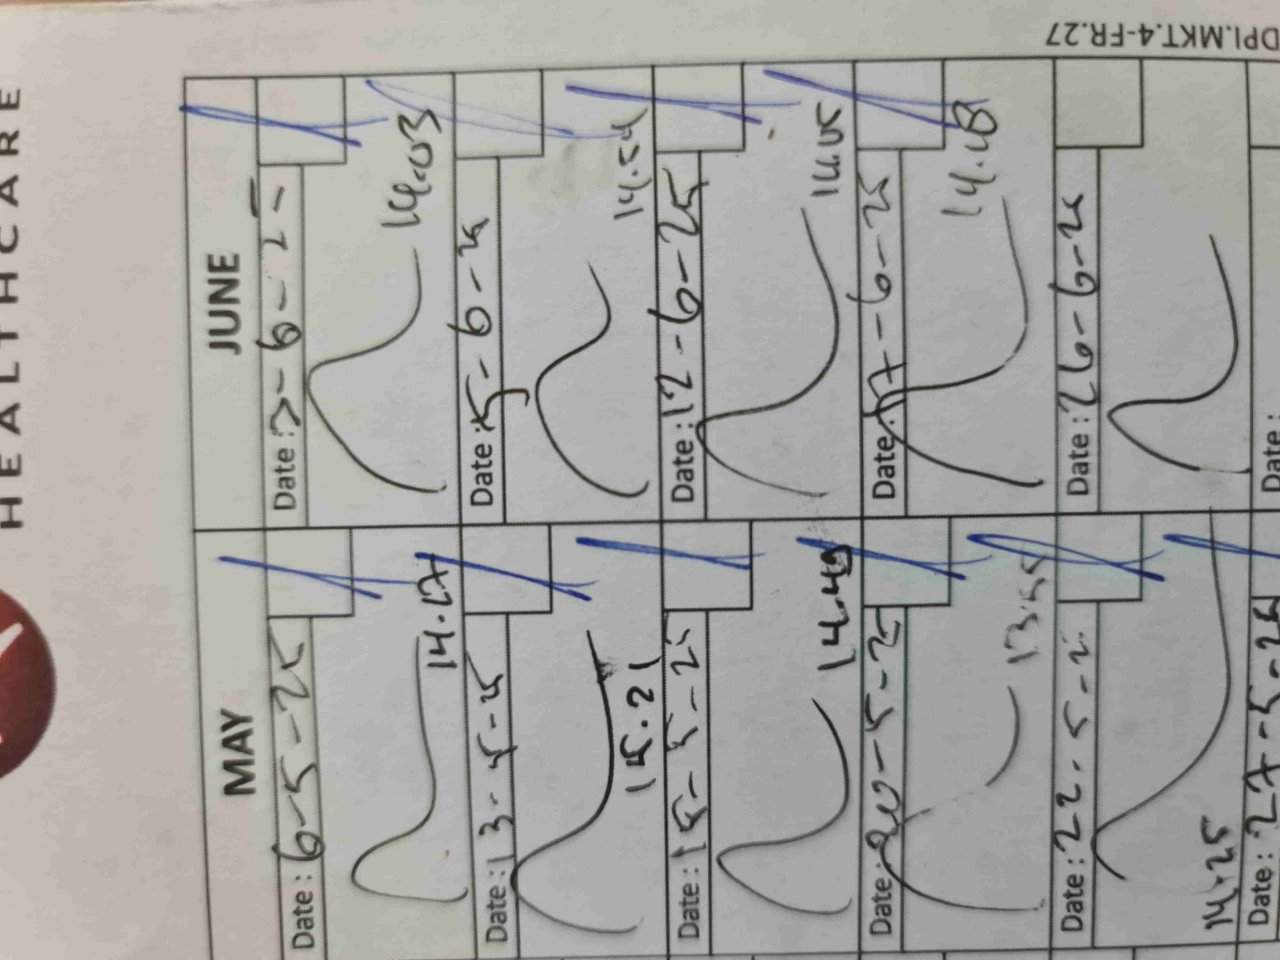 HEALTHCARE
DPI.MKT.4-FR.27
MAY
Date: 6-5-25
14.17
Date: 13-5-25
15.21
Date: 15-5-25
14.49
Date: 20-5-25
13.55
Date: 22-5-2
14.25
Date: 27-5-25
JUNE
Date: 6-2
14.03
Date: 5-6-25
14.54
Date: 12-6-25
14.05
Date: 17-6-25
14.18
Date: 26-6-25
Date: